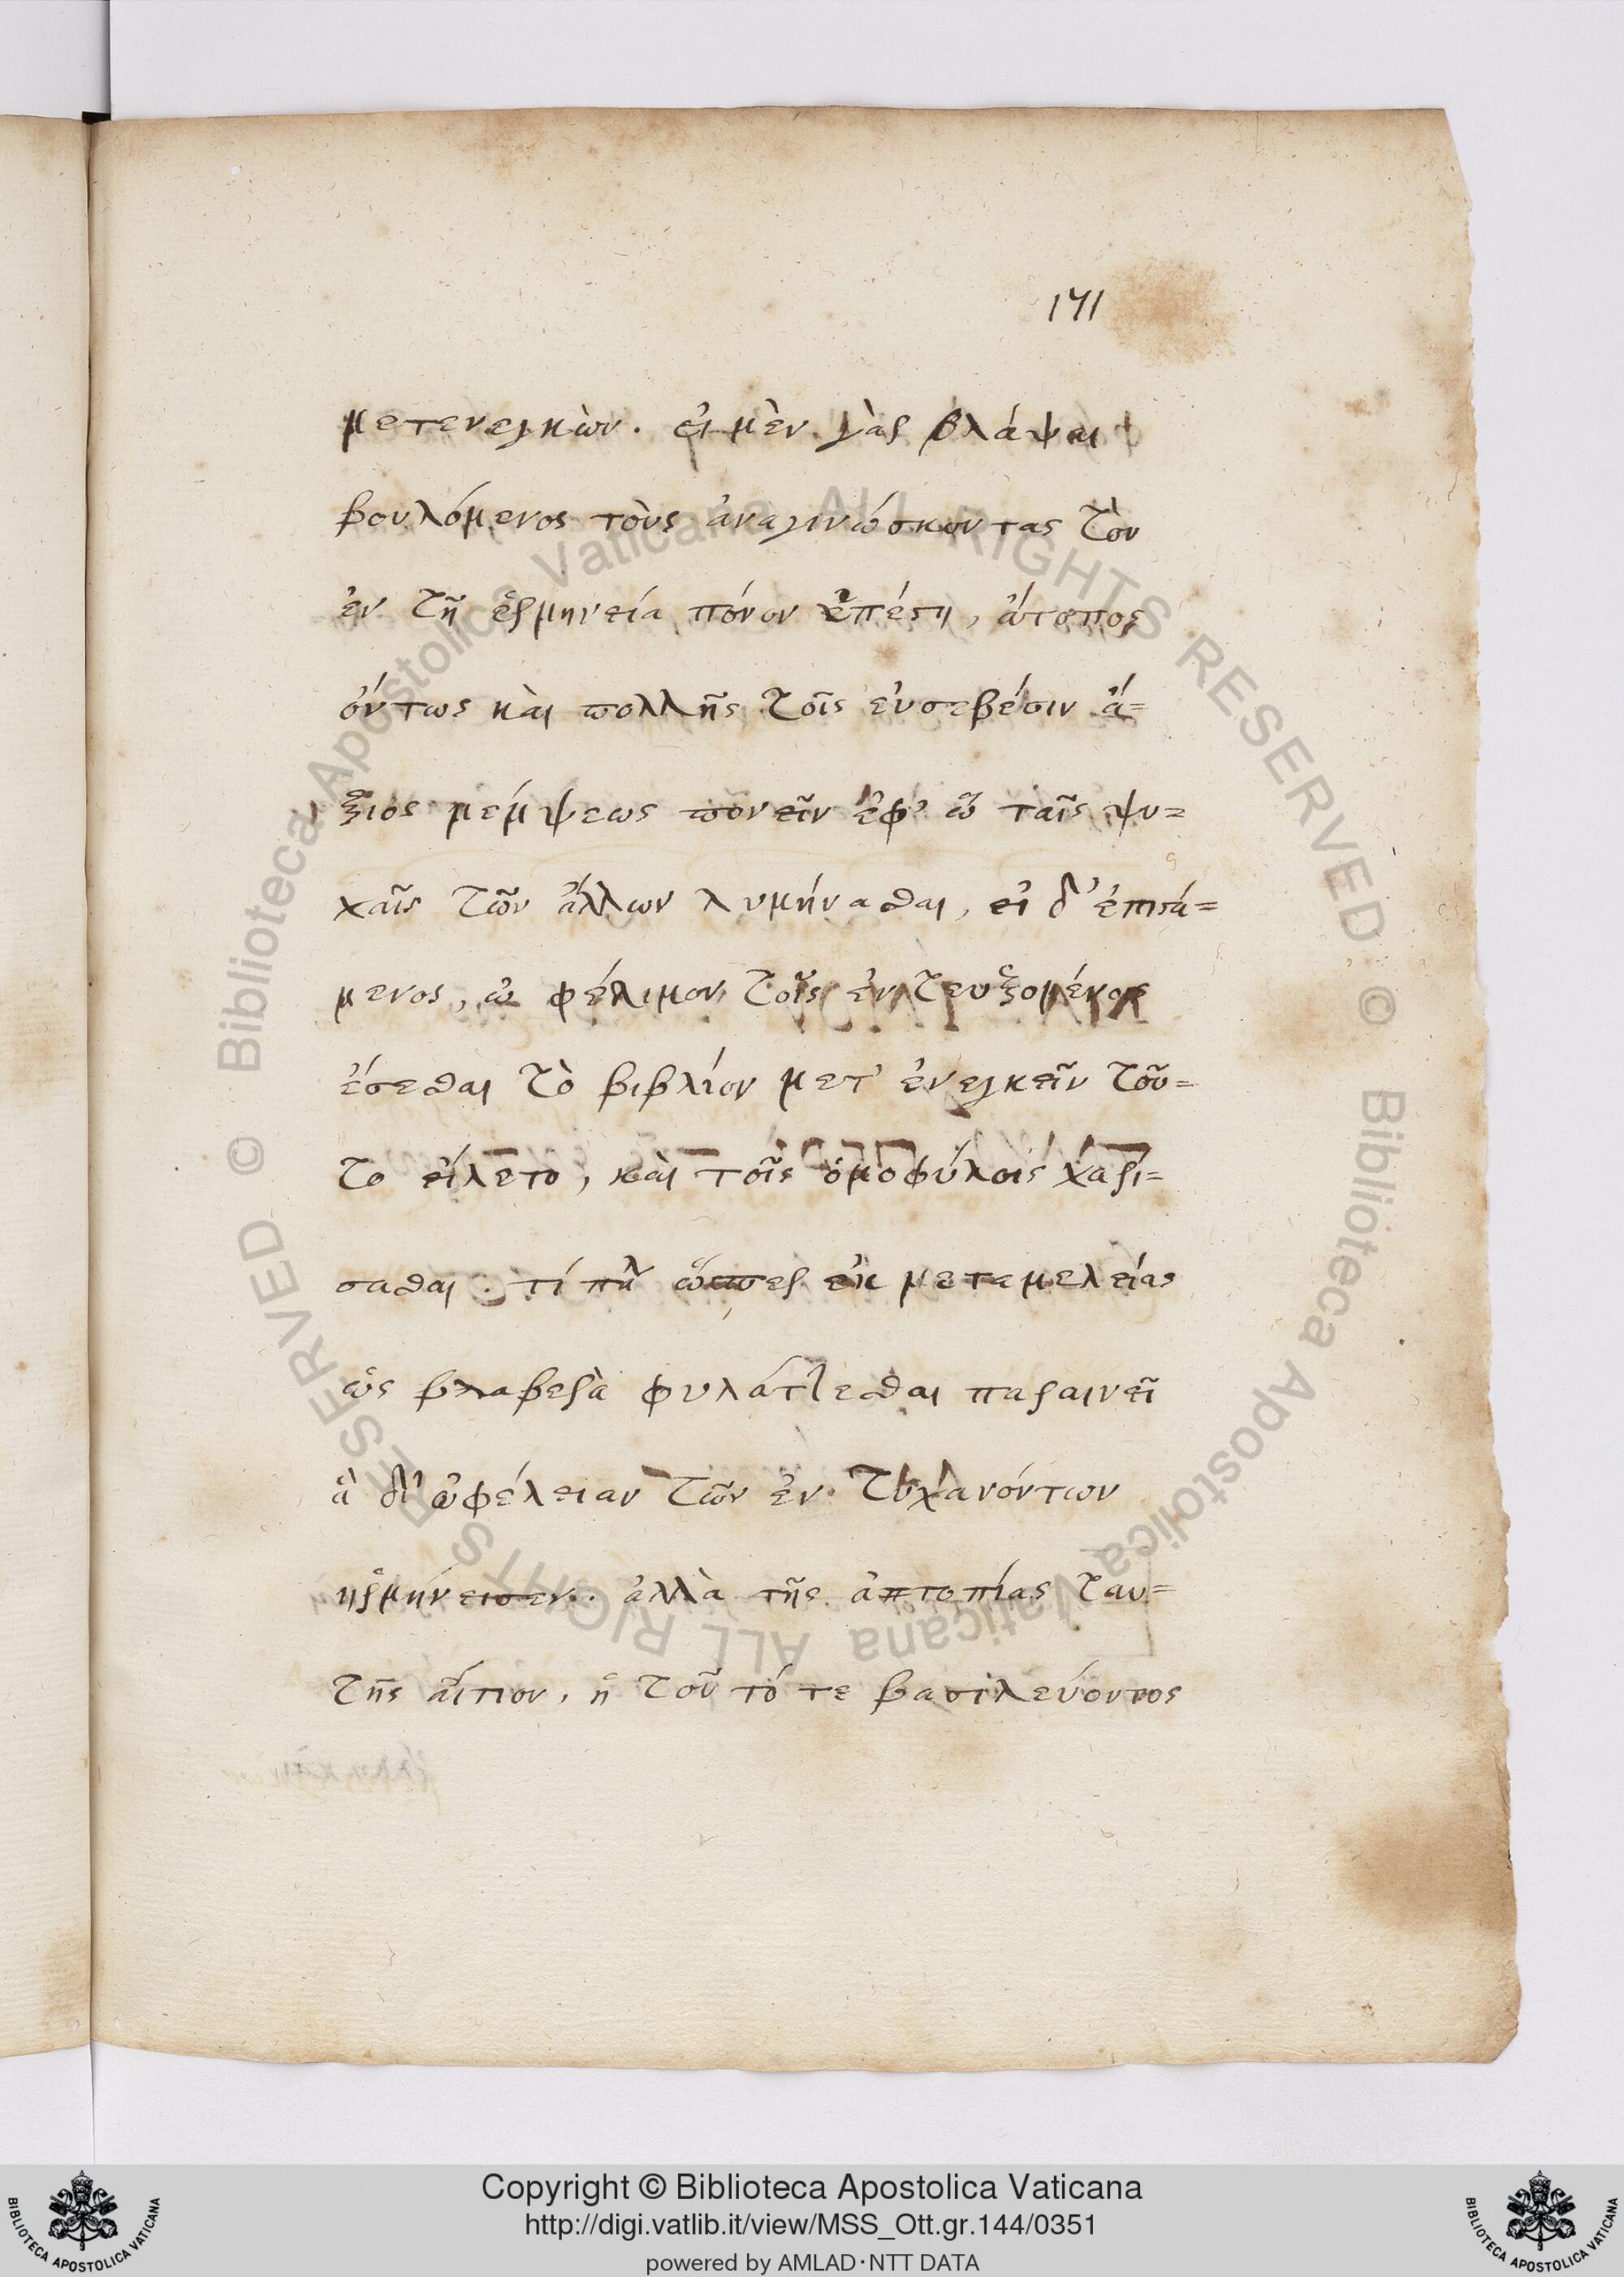 171
μετενεγκὼν. εἰ μὲν γὰρ βλάψαι
βουλόμενος τοὺς ἀναγινώσκοντας τὸν
ἐν τῇ ἑρμηνεία πόνον ὑπέστη, ἄτοπος
ὄντως καὶ πολλῆς τοῖς εὐσεβέσιν ἄ=
ξιος μέμψεως πονεῖν ἐφ' ᾧ ταῖς ψυ=
χαῖς τῶν ἄλλων λυμήνασθαι, εἰ δ' ἐπιστά=
μενος, ὠφέλιμον τοῖς ἐντευξομένοις
ἔσεσθαι τὸ βιβλίον μετ' ἐνεγκεῖν τοῦ=
το εἵλετο, καὶ τοῖς ὁμοφύλοις χαρί=
σασθαι. τί ὥσπερ ἐκ μεταμελείας
ὡς βλαβερὰ φυλάττεσθαι παραινεῖ
ἃ δι' ὠφέλειαν τῶν ἐν τυχανόντων
ηρμήνευσεν. ἀλλὰ τῆς ἀτοπίας ταυ=
της αἴτιον, ἢ τοῦ τό τε βασιλεύοντος
Copyright © Biblioteca Apostolica Vaticana
http://digi.vatlib.it/view/MSS_Ott.gr.144/0351
powered by AMLAD·NTT DATA
BIBLIOTECA APOSTOLICA VATICANA
BIBLIOTECA APOSTOLICA VATICANA
© Biblioteca Apostolica Vaticana ALL RIGHTS RESERVED © Biblioteca Apostolica Vaticana ALL RIGHTS RESERVED